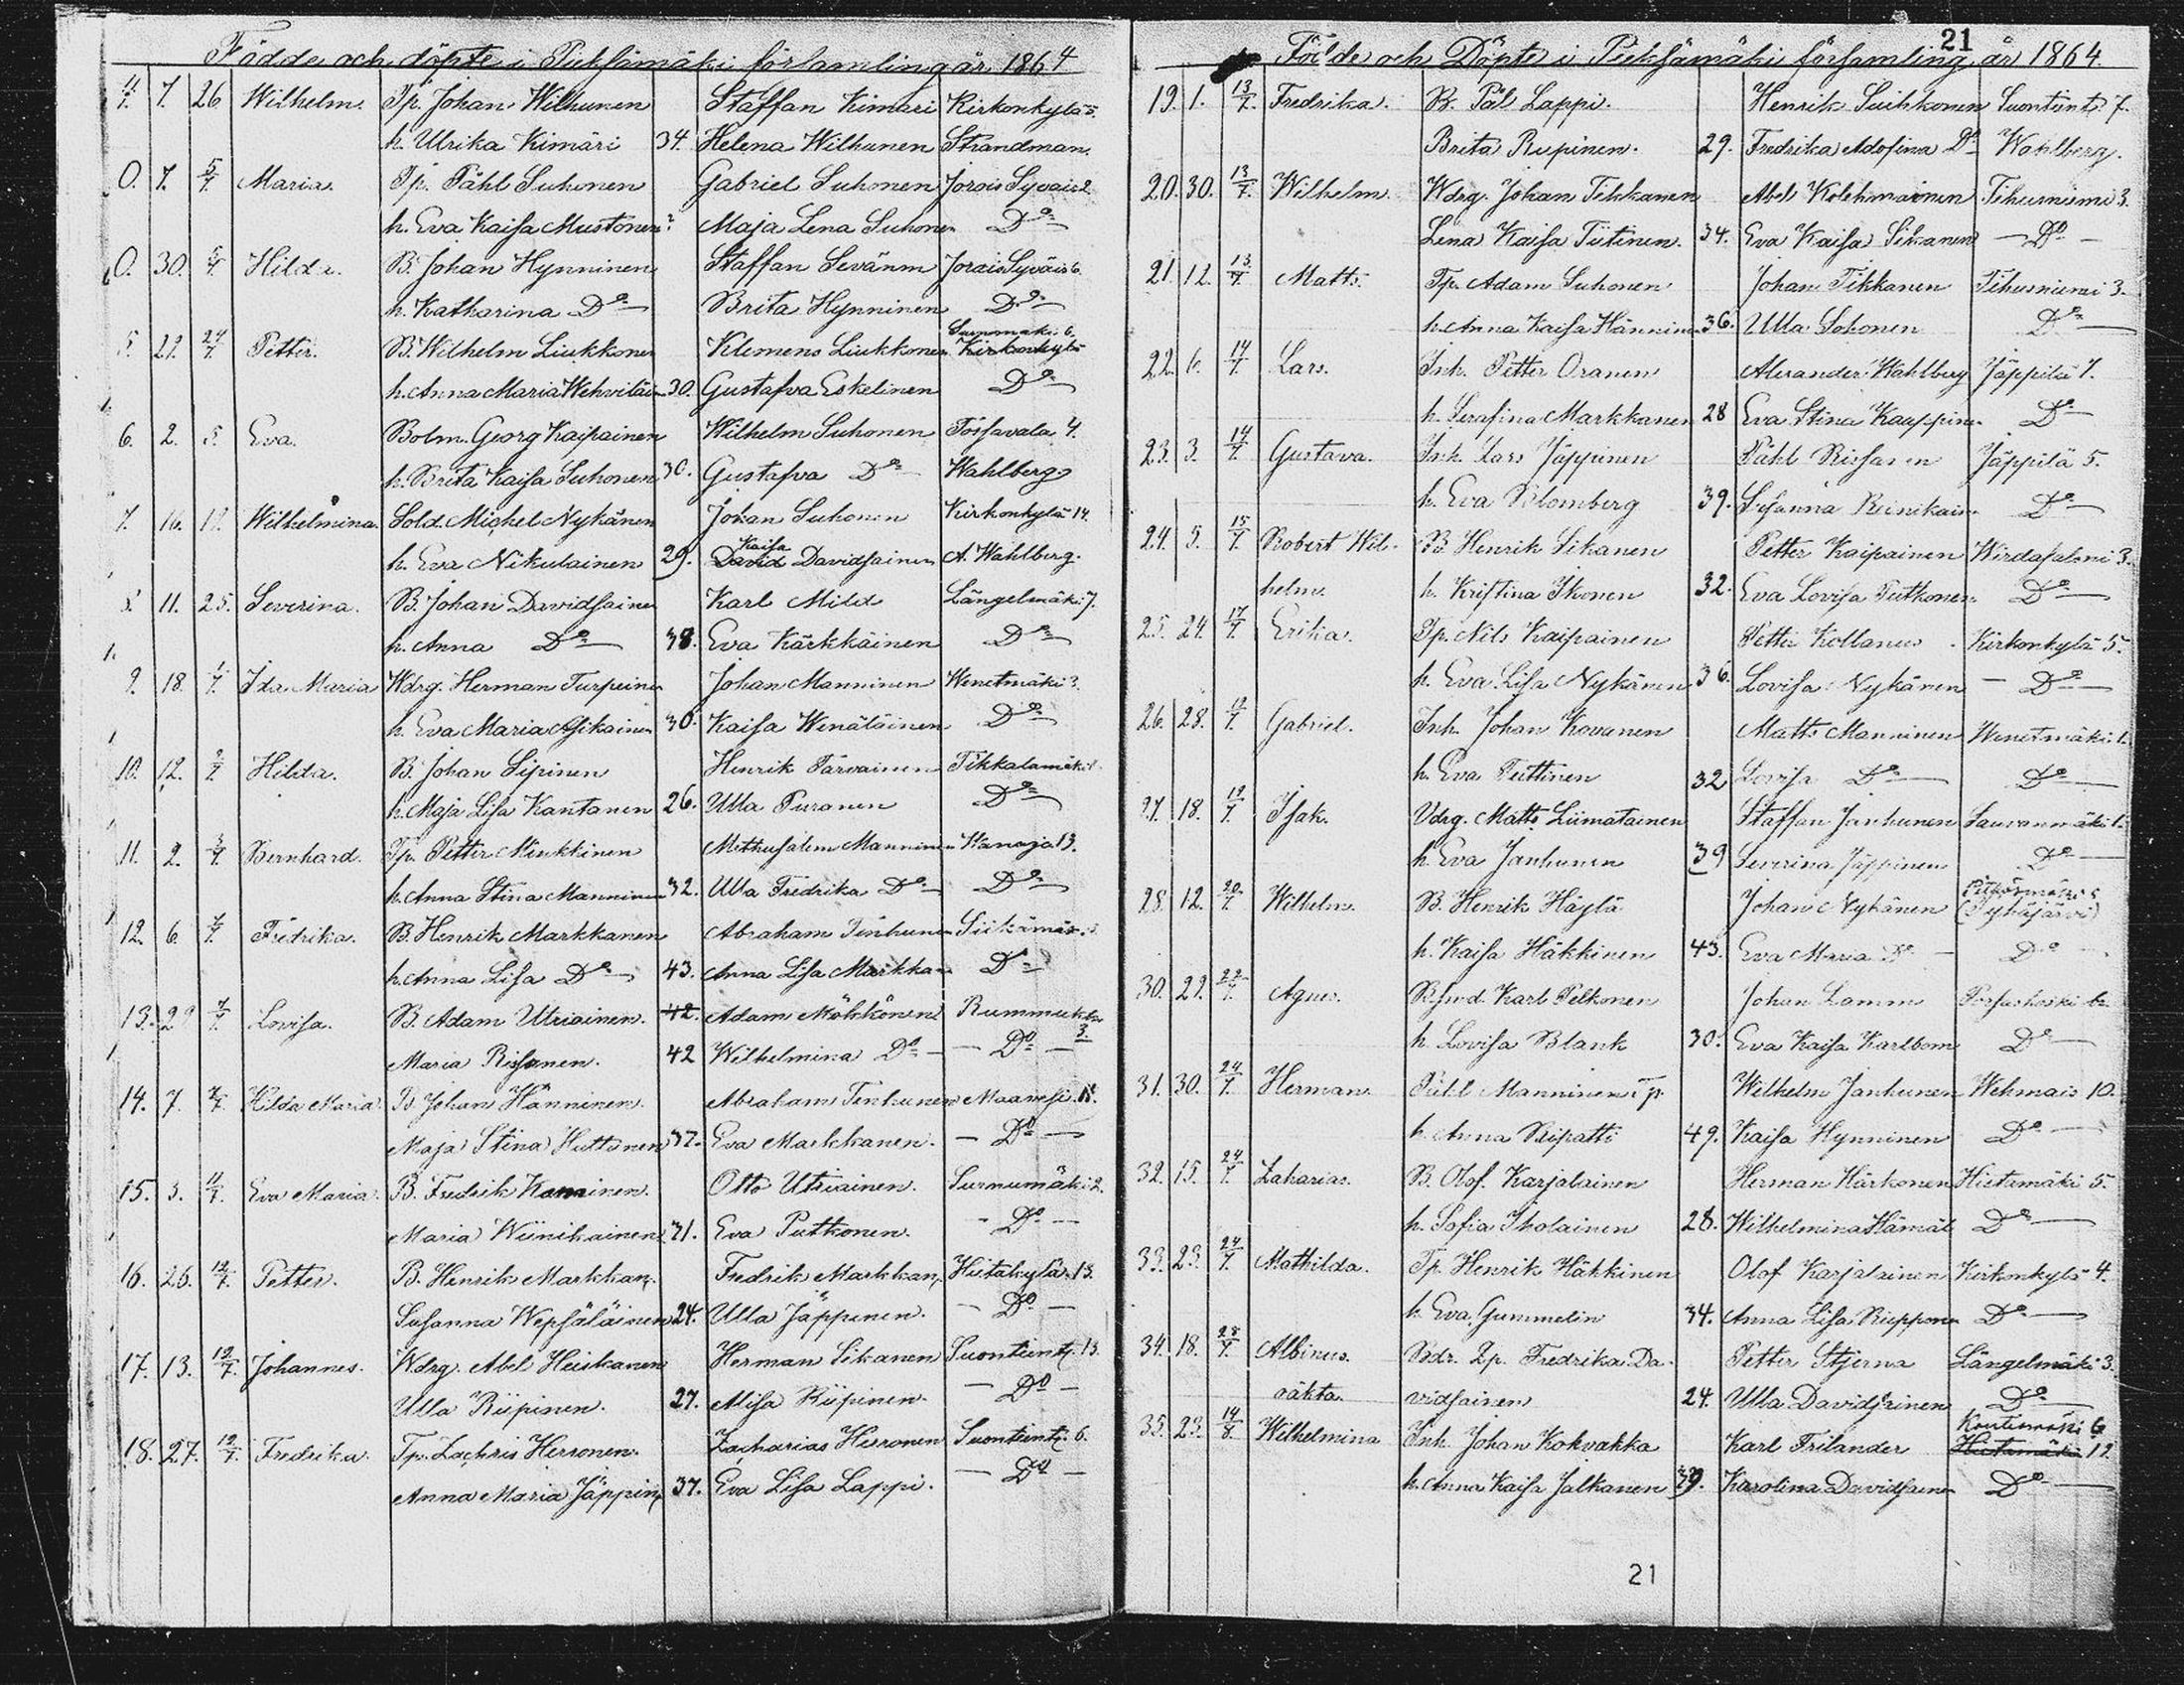 Födde och döpte i Pieksämäki församling år 1864
7. 26 Wilhelm. Tp. Johan Wilhunen Staffan Kimäri Kirkonkylä 5.
h. Ulrika Kimäri 34. Helena Wilhunen Strandman.
0. 7. 5/7 Maria. Tp. Påhl Suhonen Gabriel Suhonen Jorois Syväis 2.
h. Eva Kaisa Mustonen Maja Lena Suhonen Do
0. 30. 5/7 Hilda. B. Johan Hynninen Staffan Sevänm Jorois Syväis 6.
h. Katharina Do Brita Hynninen Do
Surnumäki 6.
5. 29. 24/7 Petter. B. Wilhelm Liukkonen Klemens Liukkonen Kirkonkylä
h. Anna Maria Wehviläin 30. Gustafva Eskelinen Do
6. 2. 5. Eva. Bolm. Georg Kaipainen Wilhelm Suhonen 4.
h. Brita Kaisa Suhonen 30. Gustafva Do Wahlberg
7. 16. Wilhelmina. Sold. Michel Nykänen Johan Suhonen Kirkonkylä 14.
Kaisa
h. Eva Nikulainen 29. David Davidsainen A. Wahlberg.
11. 25. Severina. B. Johan Davidsainen Karl Mild Längelmäki 7.
h. Anna Do 38. Eva Kärkkäinen Do
9. 18. 1/7 Ida Maria Wdrg. Herman Turpeinen Johan Manninen Wenetmäki 3.
h. Eva Maria Asikainen 30. Kaisa Wenäläinen Do
10. 12. 2/7 Hilda. B. Johan Sipinen Henrik Tarvainen Tikkalamäki
h. Maja Lisa Kantanen 26. Ulla Puranen Do
11. 2. 3/7 Bernhard. Tp. Petter Minkkinen Methusalem Manninen Hanaja 13.
h. Anna Stina Manninen 32. Ulla Fredrika Do Do
12. 6. 7/7 Fredrika. B. Henrik Markkanen Abraham Tenhunen
h. Anna Lisa Do 43. Anna Lisa Markka Do
13. 29 7/7 Lovisa. B. Adam Utriainen. 42. Adam Mökkönen Rummuk
3.
Maria Rissanen. 42 Wilhelmina Do Do
14. 7. 7/7 Hilda Maria. B. Johan Hänninen. Abraham Tenhunen Maavesi 18.
Maja Stina Huttunen 37. Eva Markkanen. Do
15. 3. 11/7. Eva Maria. B. Fredrik Kaminen. Otto Utriainen. Surnumäki 2.
Maria Wiinikainen 31. Eva Putkonen. Do
16. 26. 12/7. Petter. B. Henrik Markkan. Fredrik Markkan. Hietakylä 13.
Susanna Wepsäläinen 24. Ulla Jäppinen. Do
17. 13. 12/7. Johannes. Wdrg. Abel Heiskanen Herman Sikanen Suontient. 13.
Ulla Riipinen. 27. Alisa Riipinen. Do
18. 27. 12/7. Fredrika. Tp. Zachris Herronen. Zacharias Herronen Suontient. 6.
Anna Maria Jäppin 37. Eva Lisa Lappi. Do
21
Födde och Döpte i Pieksämäki församling år 1864.
19. 1. 13/7. Fredrika. B. Pål Lappi. Henrik Suihkonen Suontient. 7.
Brita Ripinen. 29. Fredrika Adofina Do Wahlberg.
20. 30. 13/7. Wilhelm. Wdrg. Johan Tikkanen Abel Kolehmainen Tihusniemi 3.
Lena Kaisa Tiitinen. 34. Eva Kaisa Sikanen Do
21. 12. 13/7 Matts. Tp. Adam Suhonen Johan Tikkanen Tihusniemi 3.
h. Anna Kaisa Hänninen 36. Ulla Sohonen Do
22. 6. 14/7 Lars. Inh. Petter Oranen Alexander Wahlberg Jäppilä 7.
h. Serafina Markkanen 28 Eva Stina Kauppinen Do
23. 3. 14/7. Gustava. Inh. Lars Jäppinen Påhl Rissanen Jäppilä 5.
h. Eva Blomberg 39. Susanna Reinikain Do
24. 5. 15/7. Robert Wil- B. Henrik Sikanen Petter Kaipainen Wirdasalmi 3.
helm. h. Kristina Ikonen 32. Eva Lovisa Putkonen Do
25. 24. 17/7. Erika. Tp. Nils Kaipainen Petter Kollanus Kirkonkylä 5.
h. Eva Lisa Nykänen 36. Lovisa Nykänen Do
26. 28. 17/7. Gabriel. Inh. Johan Kovanen Matts Manninen Wenetmäki 1.
h. Eva Teittinen 32 Lovisa Do Do
27. 18. 19/7. Isak. Vdrg. Matts Liimatainen Staffan Janhunen 1.
h. Eva Janhunen 39 Severina Jäppinen Do
28. 12. 20/7. Wilhelm. B. Henrik Häylä Johan Nykänen (Pyhäjärvi)
h. Kaisa Häkkinen 43. Eva Maria Do Do
30. 22. 22/7. Agnes. Karl Pelkonen Johan Lamm Porsaskoski
h. Lovisa Blank 30. Eva Kaisa Karlbom Do
31. 30. 24/7. Herman. Påhl Manninen Tp. Wilhelm Janhunen Wehmais 10.
h. Anna Ripatti 49. Kaisa Hynninen Do
32. 15. 24/7. Zaharias. B. Olof. Karjalainen Herman Härkonen Hietamäki 5.
h. Sofia Iholainen 28. Wilhelmina Hämäl Do
33. 23. 24/7. Mathilda. Tp. Henrik Häkkinen Olof Karjalainen Kirkonkylä 4.
h. Eva Gummelin 34. Anna Lisa Ruppone Do
34. 18. 28/7. Albinus. Bdr. Tp. Fredrika Da- Petter Stjerna Längelmäki 3.
oäkta. vidsainen 24. Ulla Davidsainen Do
Kontiomäki 6
35. 23. 14/8. Wilhelmina Inh. Johan Kokvakka Karl Frilander Hietamäki 12.
h. Anna Kaisa Jalkanen 39. Karolina Davidsainen Do
21